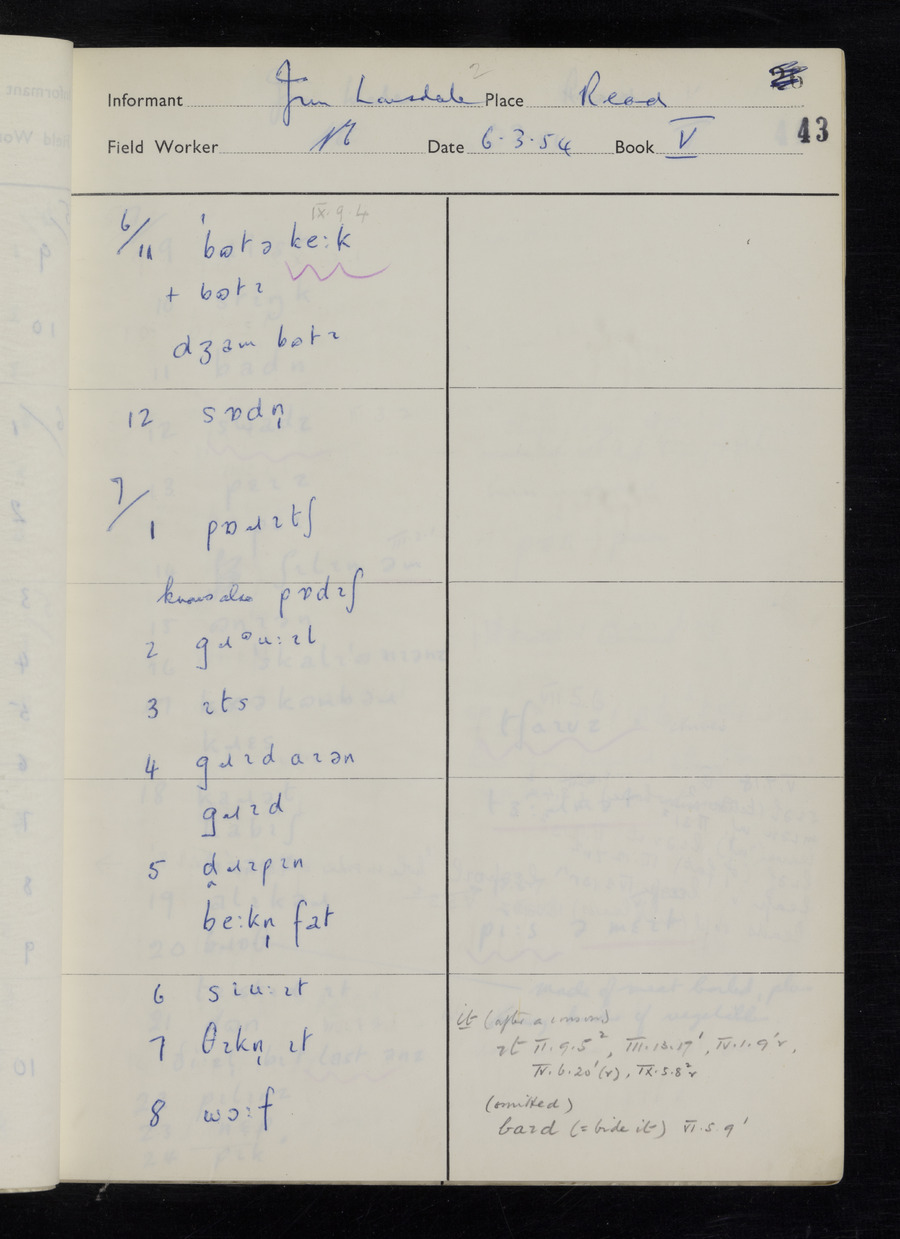 Informant Jim Lonsdale 2 Place Read
43
Field Worker Date 6·3·54 Book V
IX·9·4
6/11 bɵtə ke:k
+ bɵtɪ
dʒam bɵtɪ
12 sɒdn̩
7/1 pɒɹɪtʃ
knows also pɒdɪʃ
2 gɹəu:ɪl
3 ɪts
4 gɹɪdaɪən
gɹɪd
5 dɹɪpɪn
be:kn̩ fat
6 sɪu:ɪt
7 θɪkn̩ ɪt
8 wɔ:f
it (after a conson)
ɪt II·9·5², III·13·17', IV·1·9'r,
IV·6·20'(r), IX·5·8²r
(omitted)
baɪd (= bide it) VI·5·9'